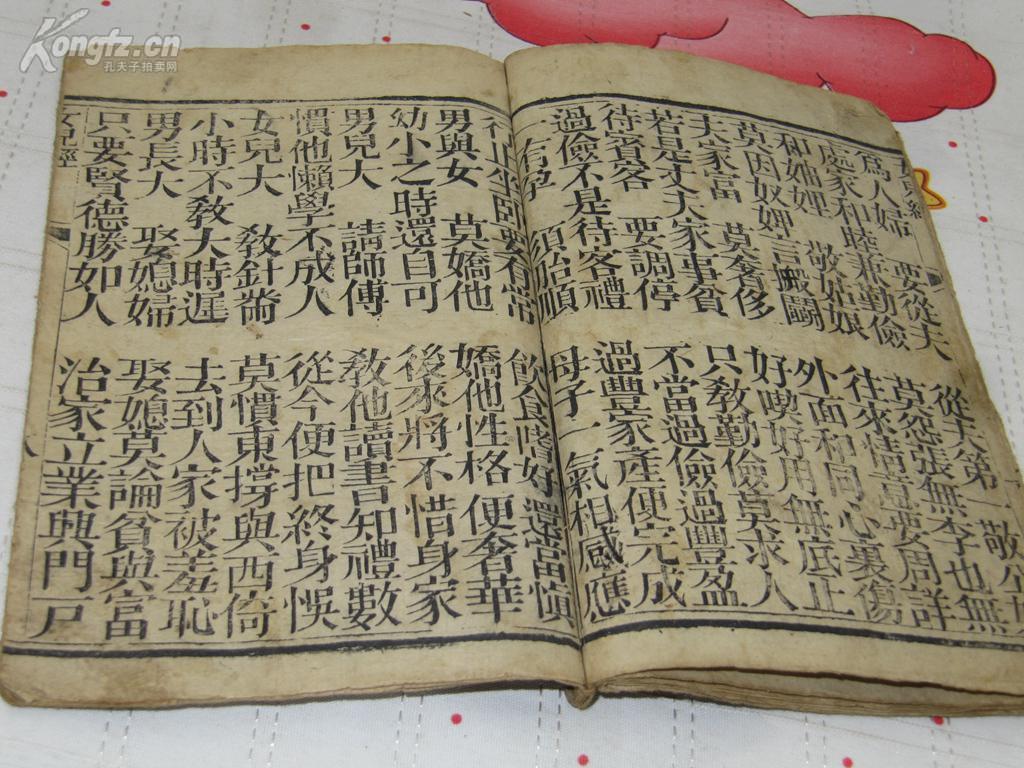 Kongfz.cn
孔夫子拍卖网
爲人婦 要從夫 從夫第一敬
處家和睦兼勤儉 莫怨張無李也無
和妯娌 敬姑娘 往來情意要周詳
莫因奴婢言搬鬬 外面和同心裏傷
夫家富 莫奢侈 好喫好用無底止
若是丈夫家事貧 只敎勤儉莫求人
待賓客 要調停 不當過儉過豐盈
過儉不是待客禮 過豐家產便完成
一有孕 須胎順 母子一氣相感應
行止坐臥要有常 飮食嗜好還當愼
男與女 莫嬌他 嬌他性格便奢華
幼小之時還自可 後來將不惜身家
男兒大 請師傅 敎他讀書知禮數
慣他懶學不成人 從今便把終身悞
女兒大 敎針黹 莫慣東撐與西倚
小時不敎大時遲 去到人家被羞恥
男長大 娶媳婦 娶媳莫論貧與富
只要賢德勝如人 治家立業興門戶
女兒經 八